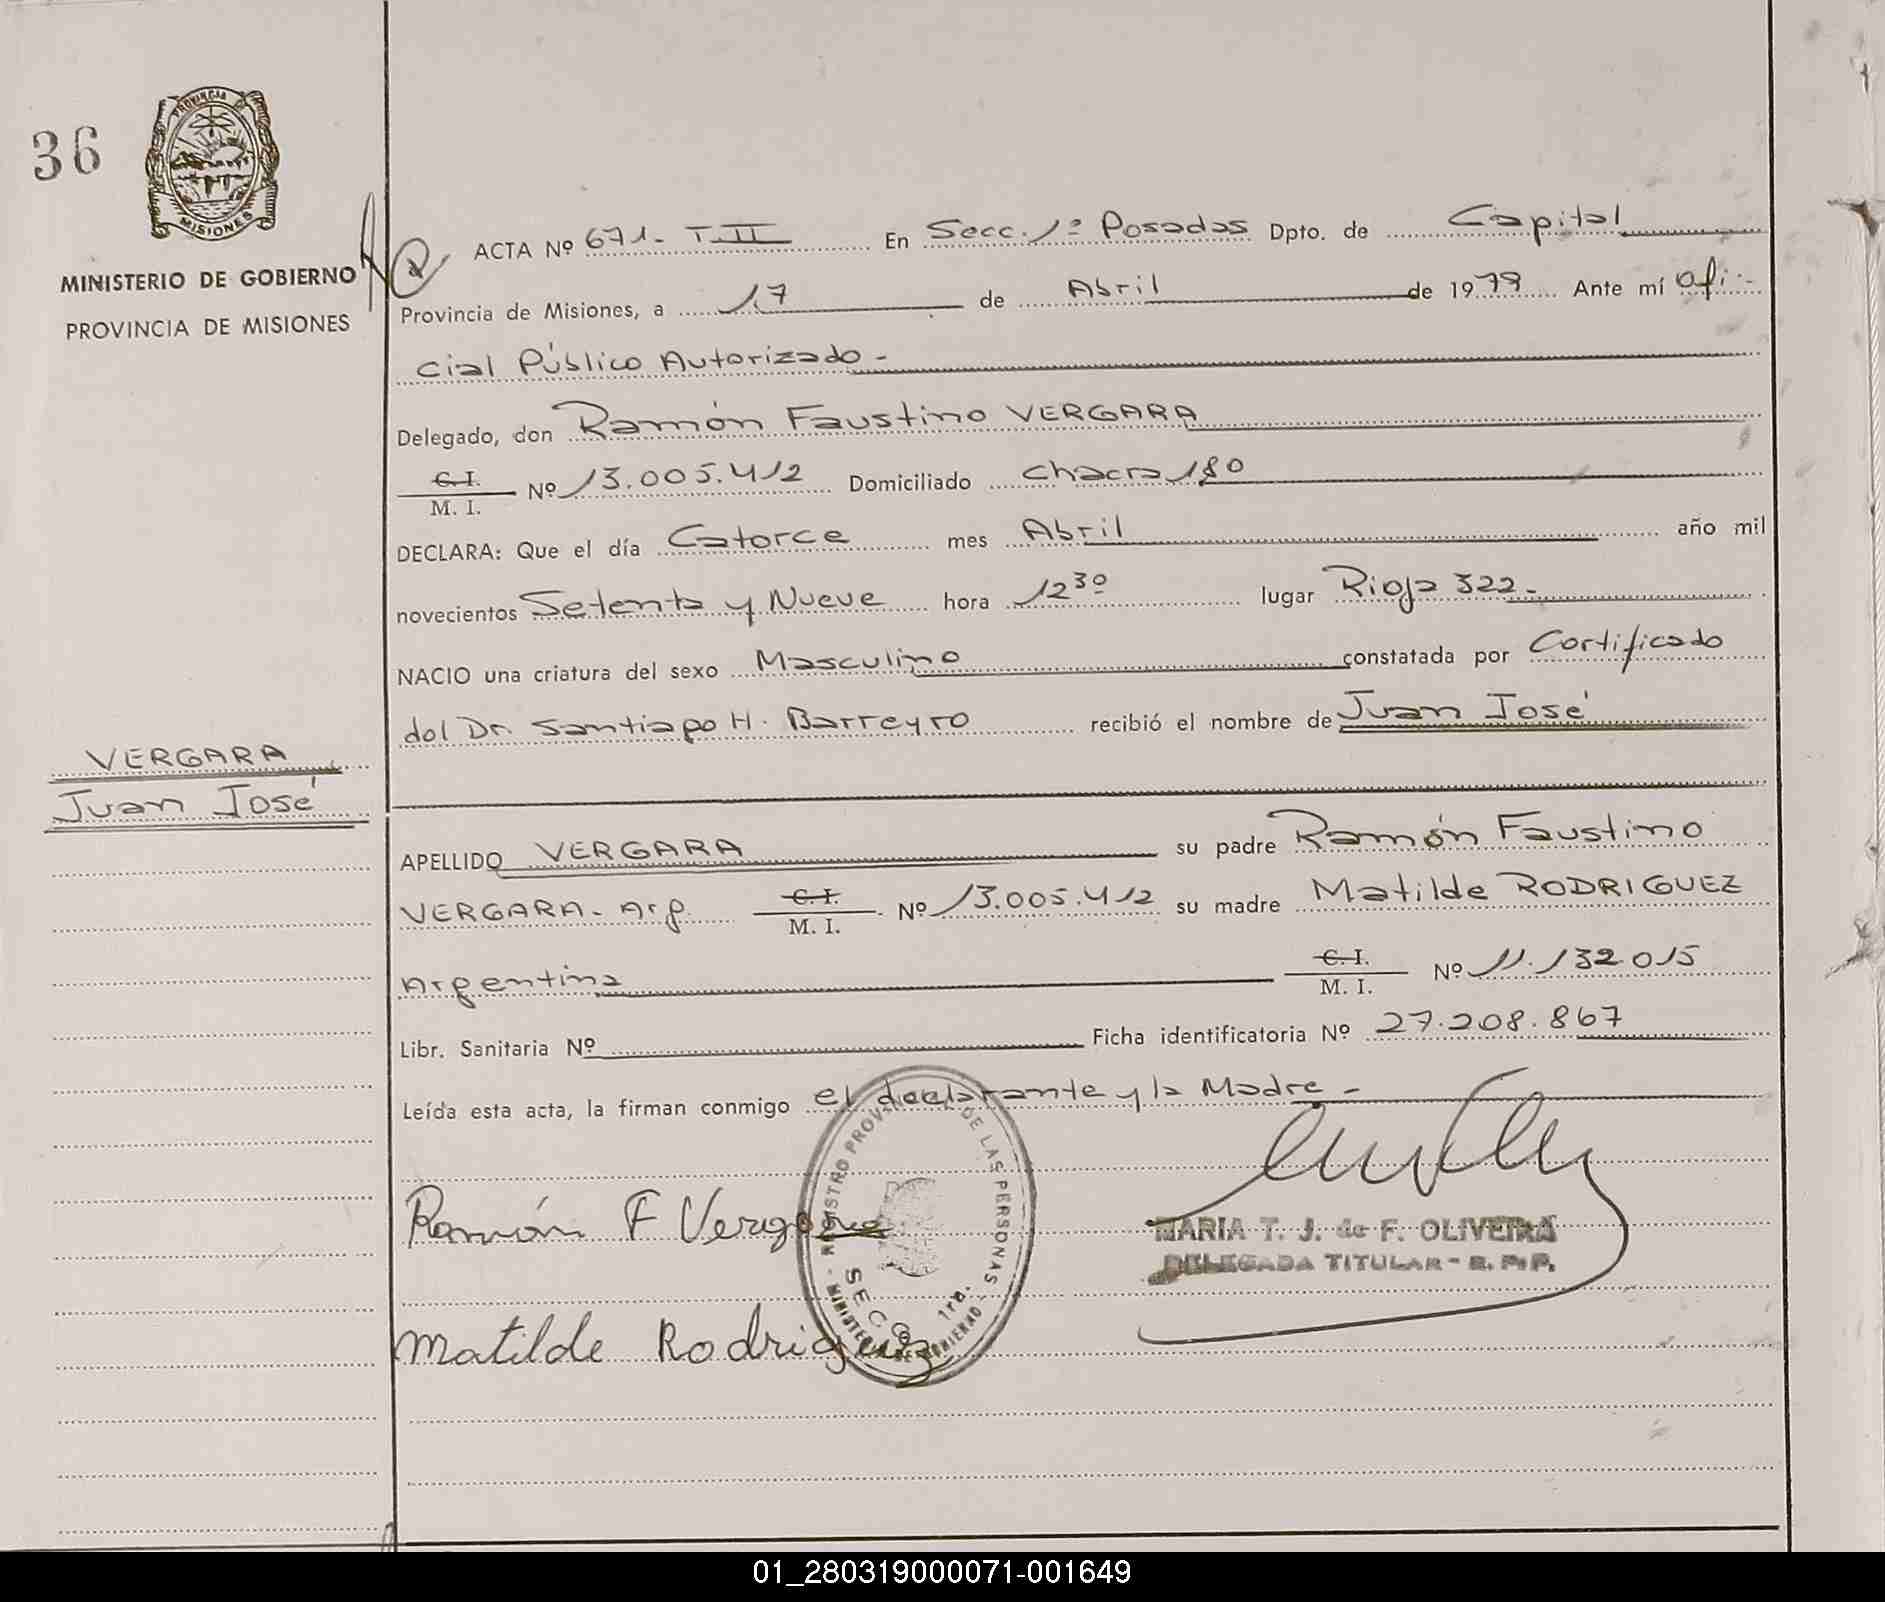 36
PROVINCIA DE
MISIONES
MINISTERIO DE GOBIERNO
PROVINCIA DE MISIONES
VERGARA
Juan José
ACTA Nº 671- T-II En Secc. 1ª Posadas Dpto. de Capital
Provincia de Misiones, a 17 de Abril de 1979 Ante mí Ofi-
cial Público Autorizado-
Delegado, don Ramón Faustino VERGARA
C. I.
M. I. Nº 13.005.412 Domiciliado Chacra 180
DECLARA: Que el día Catorce mes Abril año mil
novecientos Setenta y Nueve hora 12 30 lugar Rioja 322-
NACIO una criatura del sexo Masculino constatada por Certificado
del Dr. Santiago H. Barreyro recibió el nombre de Juan José
APELLIDO VERGARA su padre Ramón Faustino
VERGARA- Arg. C. I. M. I. Nº 13.005.412 su madre Matilde RODRIGUEZ
Argentina C. I. M. I. Nº 11.132.015
Libr. Sanitaria Nº Ficha identificatoria Nº 27.208.867
Leída esta acta, la firman conmigo el declarante y la Madre-
Ramón F Vergara
MARIA T. J. de F. OLIVEIRA
DELEGADA TITULAR - R. P. P.
Matilde Rodriguez
REGISTRO PROV DE LAS PERSONAS
SECC 1ra.
MINISTERIO DE GOBIERNO
01_280319000071-001649